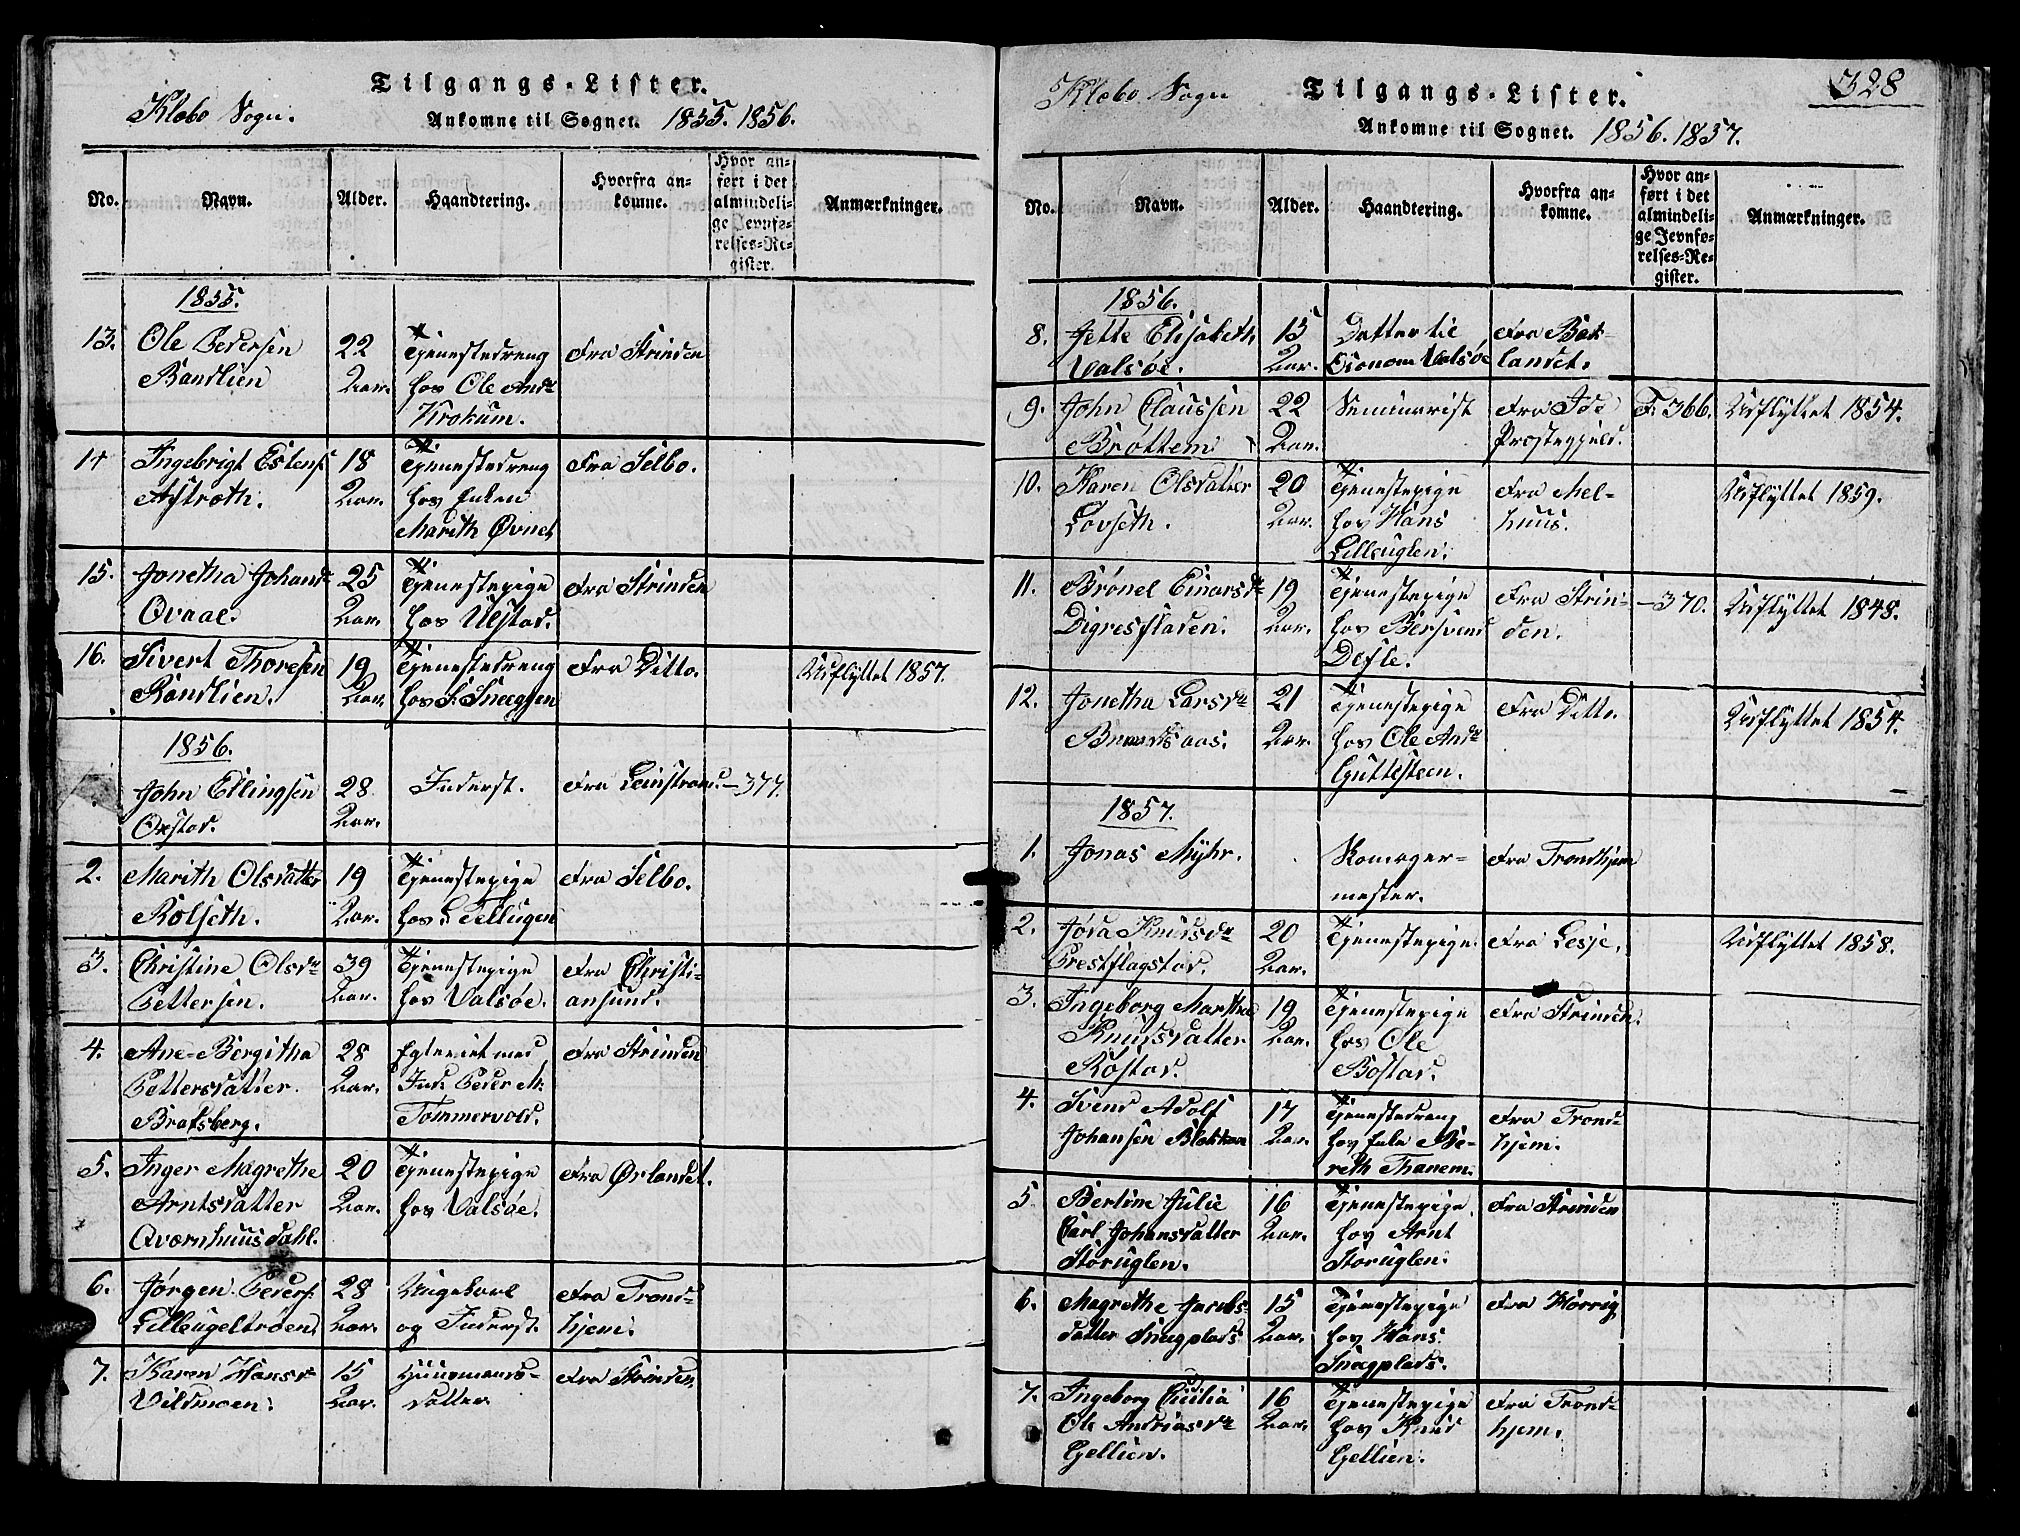 Tilgangs-Lister.
Klæbo Sogn.
Ankomne til Sognet. 1855. 1856.
No. Navn. Alder. Haandtering. Hvorfra ankomne. Hvor anført i det almindelige Jevnførelses-Register. Anmærkninger.
1855.
13. Ole Pedersen 22 Tjenestedreng Fra Strinden
Bandlien Aar. hos Ole Andr
Krokum.
14 Ingebrigt Estens 18 Tjenestedreng Fra Selbo.
Aftreth. Aar. hos Enken
Marith Øvnes
15. Jonetha Johansdr 25 Tjenestepige Fra Strinden
Qvaal. Aar. hos Ulstad.
16. Sivert Thoresen 19 Tjenestedreng Fra Ditto. Udflyttet 1857.
Bandlien. Aar. hos S. Sneeggen
1856.
John Ellingsen 28 Inderst. Fra Leinstrand. -377.
Oxstad. Aar.
2. Marith Olsdatter 19 Tjenestepige Fra Selbo.
Rolseth. Aar. hos L Tellugen
3. Christine Olsdr 39 Tjenestepige Fra Christi-
Pettersen. Aar. hos Valsøe. ansund.
4. Ane Bergitha 28 Egteviet med Fra Strinden
Pettersdatter Aar. Ind. Peder M.
Bratsberg. Tømmervold.
5. Inger Magrethe 20 Tjenestepige Fra Ørlandet.
Arntsdatter Aar. hos Valsøe.
Qværnhuusdahl.
6. Jørgen Peders. 28 Vigekarl Fra Trond-
Lilleugeltrøen Aar. og Inderst. hjem.
7. Karen Hansdr 15 Huusmands- Fra Strinden
Vildmoen. Aar. datter
328
Klæbo Sogn Tilgangs-Lister.
Ankomne til Sognet. 1856. 1857.
No. Navn. Alder. Haandtering. Hvorfra ankomne. Hvor anført i det almindelige Jevnførelses-Register. Anmærkninger.
1856.
8. Jette Elisabeth 15 Datter til Fra Bak-
Valsøe. Aar. Oconom Valsøe landet.
9. John Claussen 22 Seminarist Fra Idd F. 366. Udflyttet 1854.
Brøttem Aar. Prestegjeld.
10. Karen Olsdatter 20 Tjenestepige Fra Mel- Udflyttet 1859.
Løvseth. Aar. hos Hans huus.
Lilleuglen.
11. Brønel Einarsdr 19 Tjenestepige Fra Strin- -370. Udflyttet 1848.
Digresfladen. Aar. hos Bersvend den.
Defle.
12. Jonetha Larsdr 21 Tjenestepige Fra Ditto. Udflyttet 1854.
Aar. hos Ole Andr
Guttesteen.
1857.
1. Jonas Myhr. Komager- Fra Trondhjem
mester.
2. Jøda Knudsdr 20 Tjenestepige. Fra Lesje. Udflyttet 1858.
Prestflagstad. Aar.
3. Ingeborg Martha 19 Tjenestepige Fra Strinden.
Knudsdatter Aar. hos Ole
Rostad. Bostad.
4. Svend Adolf 17 Tjenestedreng Fra Trond-
Johansen Blekkan Aar. hos Enke Me- hjem.
reth Thanem.
5 Bertine Julie 16 Tjenestepige Fra Strinden
Carl Johansdatter Aar. hos Arnt
Storuglen. Storuglen.
6. Magrethe Jacobs- 15 Tjenestepige Fra Horrig
datter Sneeplads Aar. hos Hans
Sneeplads.
7. Ingeborg Cicilia 16 Tjenestepige Fra Trond-
Ole Andriasdr Aar. hos Knud hjem.
Gellien. Gellien.